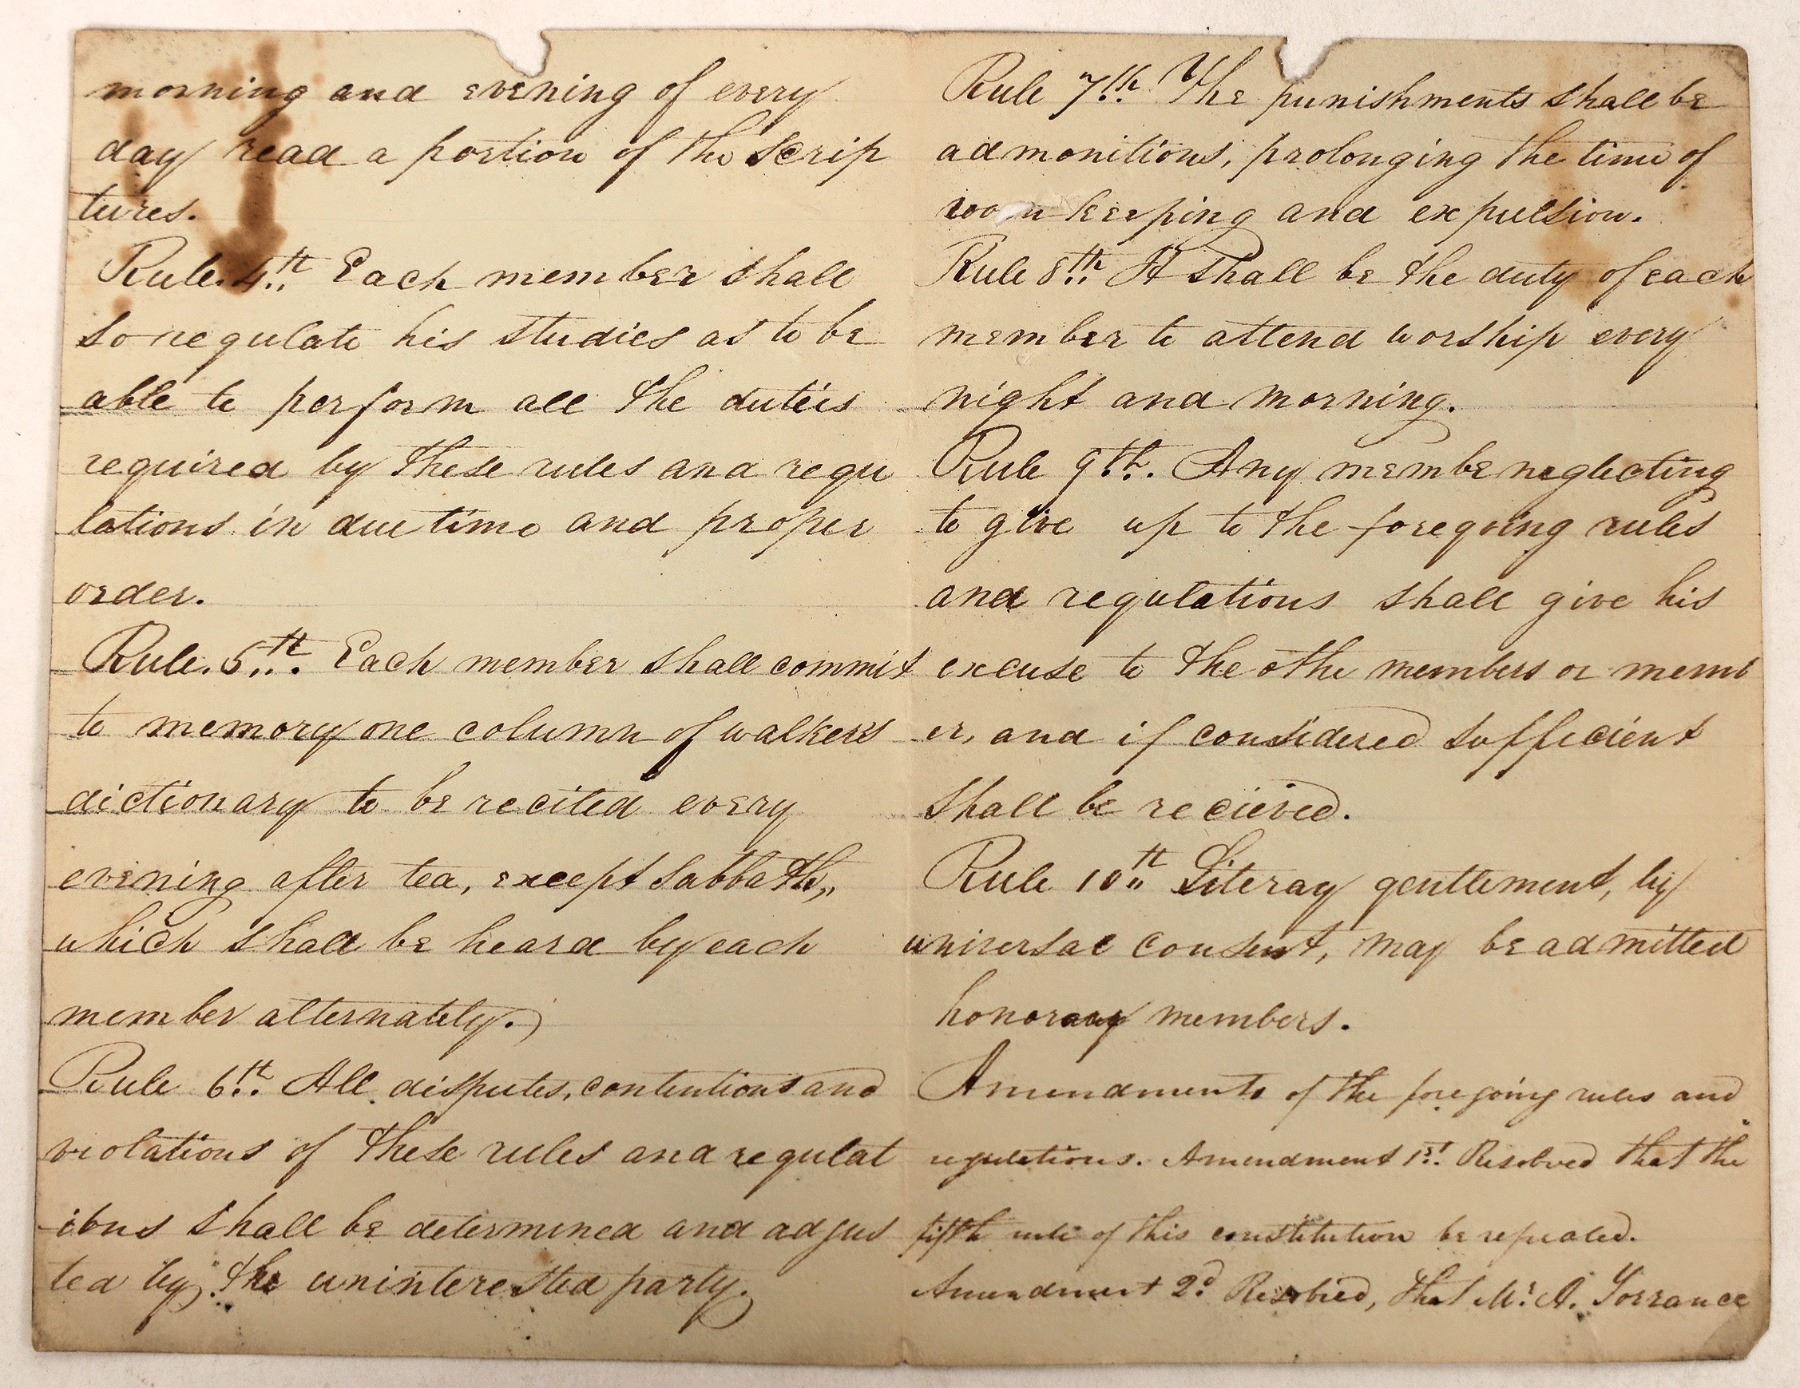 morning and evening of every
day read a portion of the Scrip
tures.
Rule. 4th. Each member shall
so regulate his studies as to be
able to perform all the duteis
required by these rules and regu
lations in due time and proper
order.
Rule. 5th. Each member shall commit
to memory one column of walker's
dictionary to be recited every
evening after tea, except Sabbath,,
which shall be heard by each
member alternately.
Rule 6th. All disputes, contentions and
violations of these rules and regulat
ions shall be determined and adjus
ted by the uninterested party.
Rule 7th. The punishments shall be
admonitions, prolonging the time of
room keeping and expulsion.
Rule 8th. It shall be the duty of each
member to attend worship every
night and morning.
Rule 9th. Any membe neglecting
to give up to the foregoing rules
and regulations shall give his
excuse to the othe members or memb
er, and if considered sufficient
shall be recieved.
Rule 10th Literay gentlement, by
universal consent, may be admitted
honorary members.
Amendments of the foregoing rules and
regulations. Amendment 1st. Resolved that the
fifth rule of this constitution be repealed.
Amendment 2d. Resolved, that Mr. A. Torrance